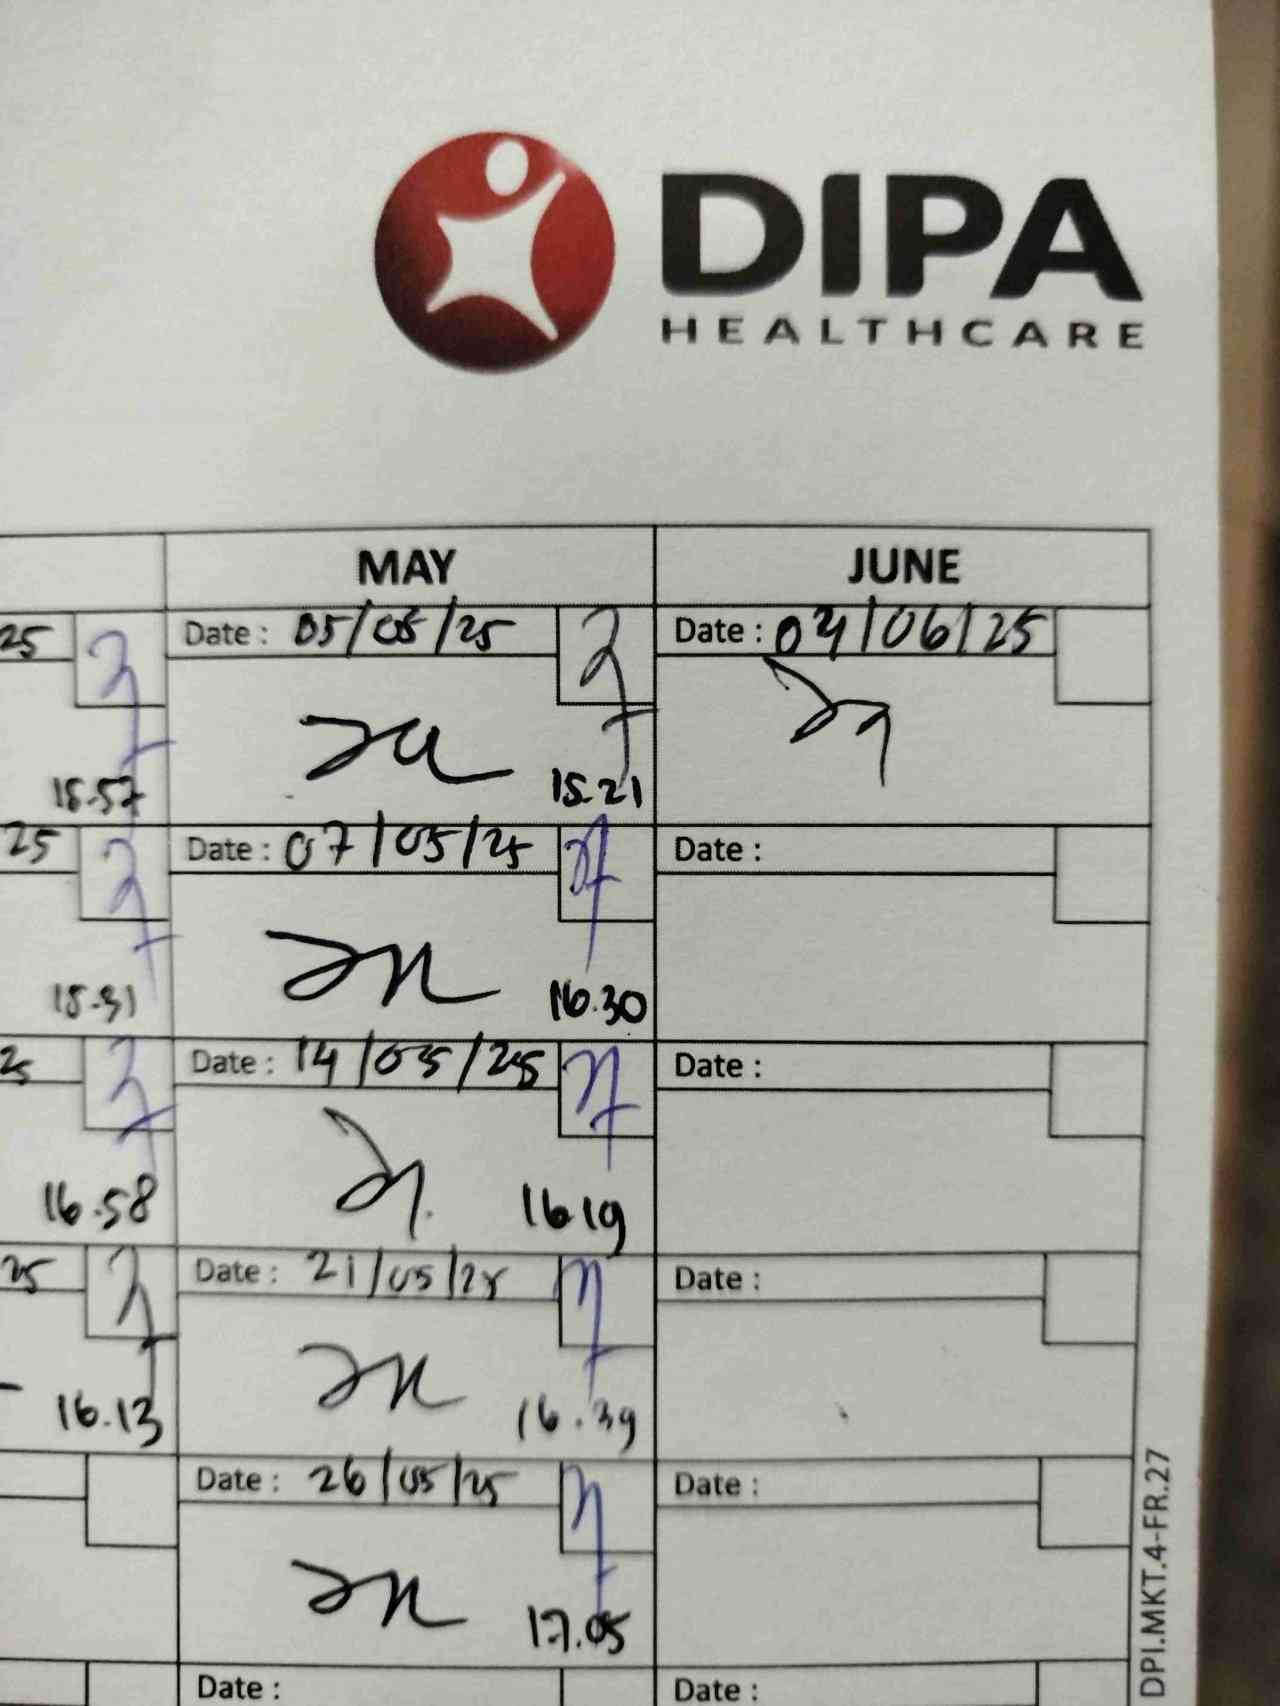 DIPA
HEALTHCARE
MAY
JUNE
25
Date : 05/05/25
Date : 04/06/25
15.57
15.21
25
Date : 07/05/25
Date :
15.31
16.30
25
Date : 14/05/25
Date :
16.58
16.19
25
Date : 21/05/25
Date :
16.13
16.39
Date : 26/05/25
Date :
17.05
Date :
Date :
DPI.MKT.4-FR.27